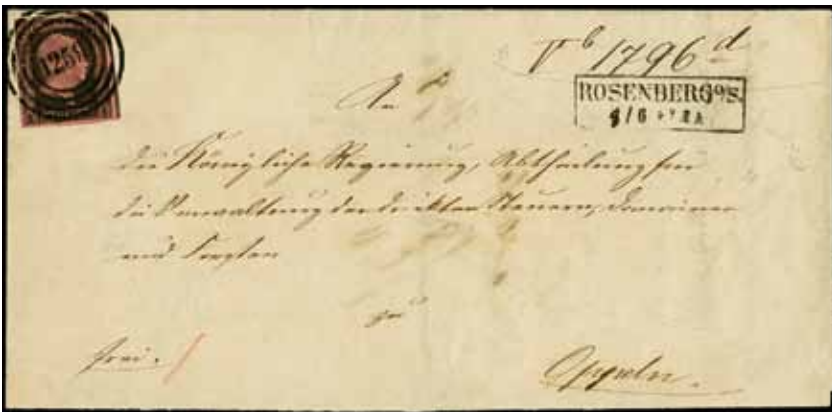 1259
V b 1796 d
ROSENBERG O/S.
An
die Königliche Regierung, Abtheilung für
die Verwaltung der direkten Steuern, Domainen
und Forsten
zu
frei.
Oppeln.